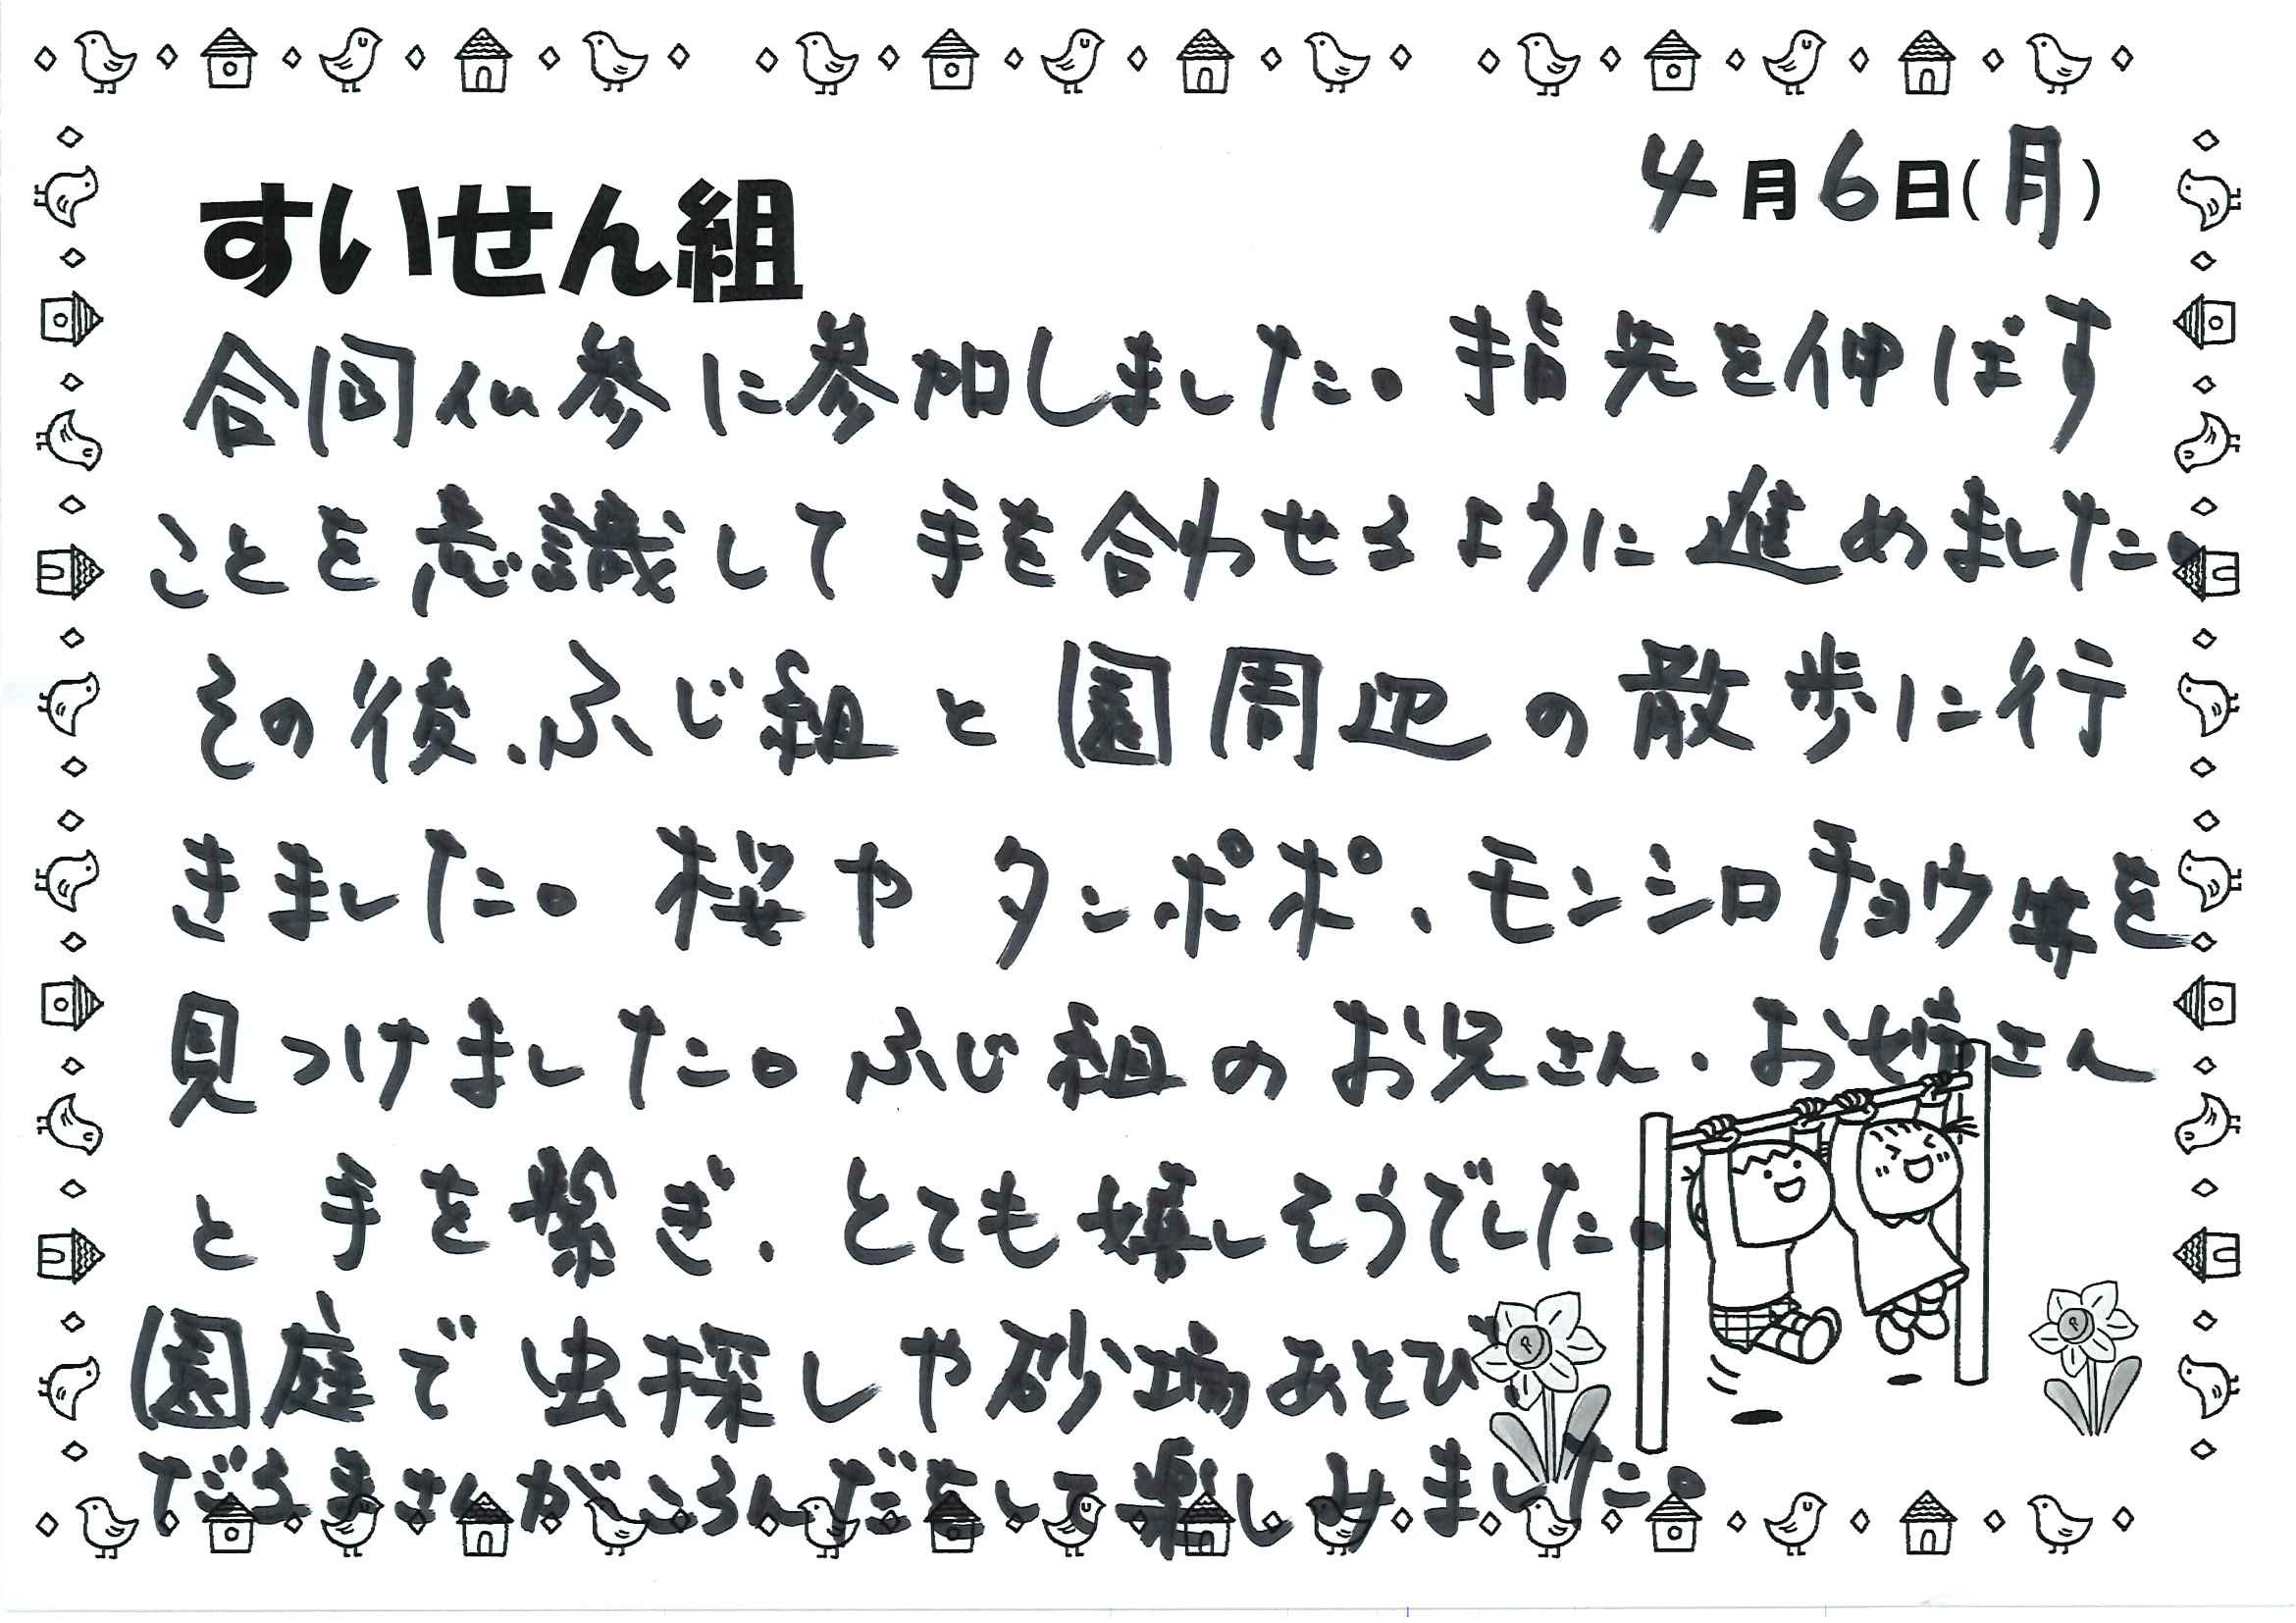 4月6日(月)
すいせん組
合同仏参に参加しました。指先を伸ばす
ことを意識して手を合わせるように進めました。
その後、ふじ組と園周辺の散歩に行
きました。桜やタンポポ、モンシロチョウ等を
見つけました。ふじ組のお兄さん・お姉さん
と手を繋ぎ、とても嬉しそうでした。
園庭で虫探しや砂場あそび、
だるまさんがころんだをして楽しみました。